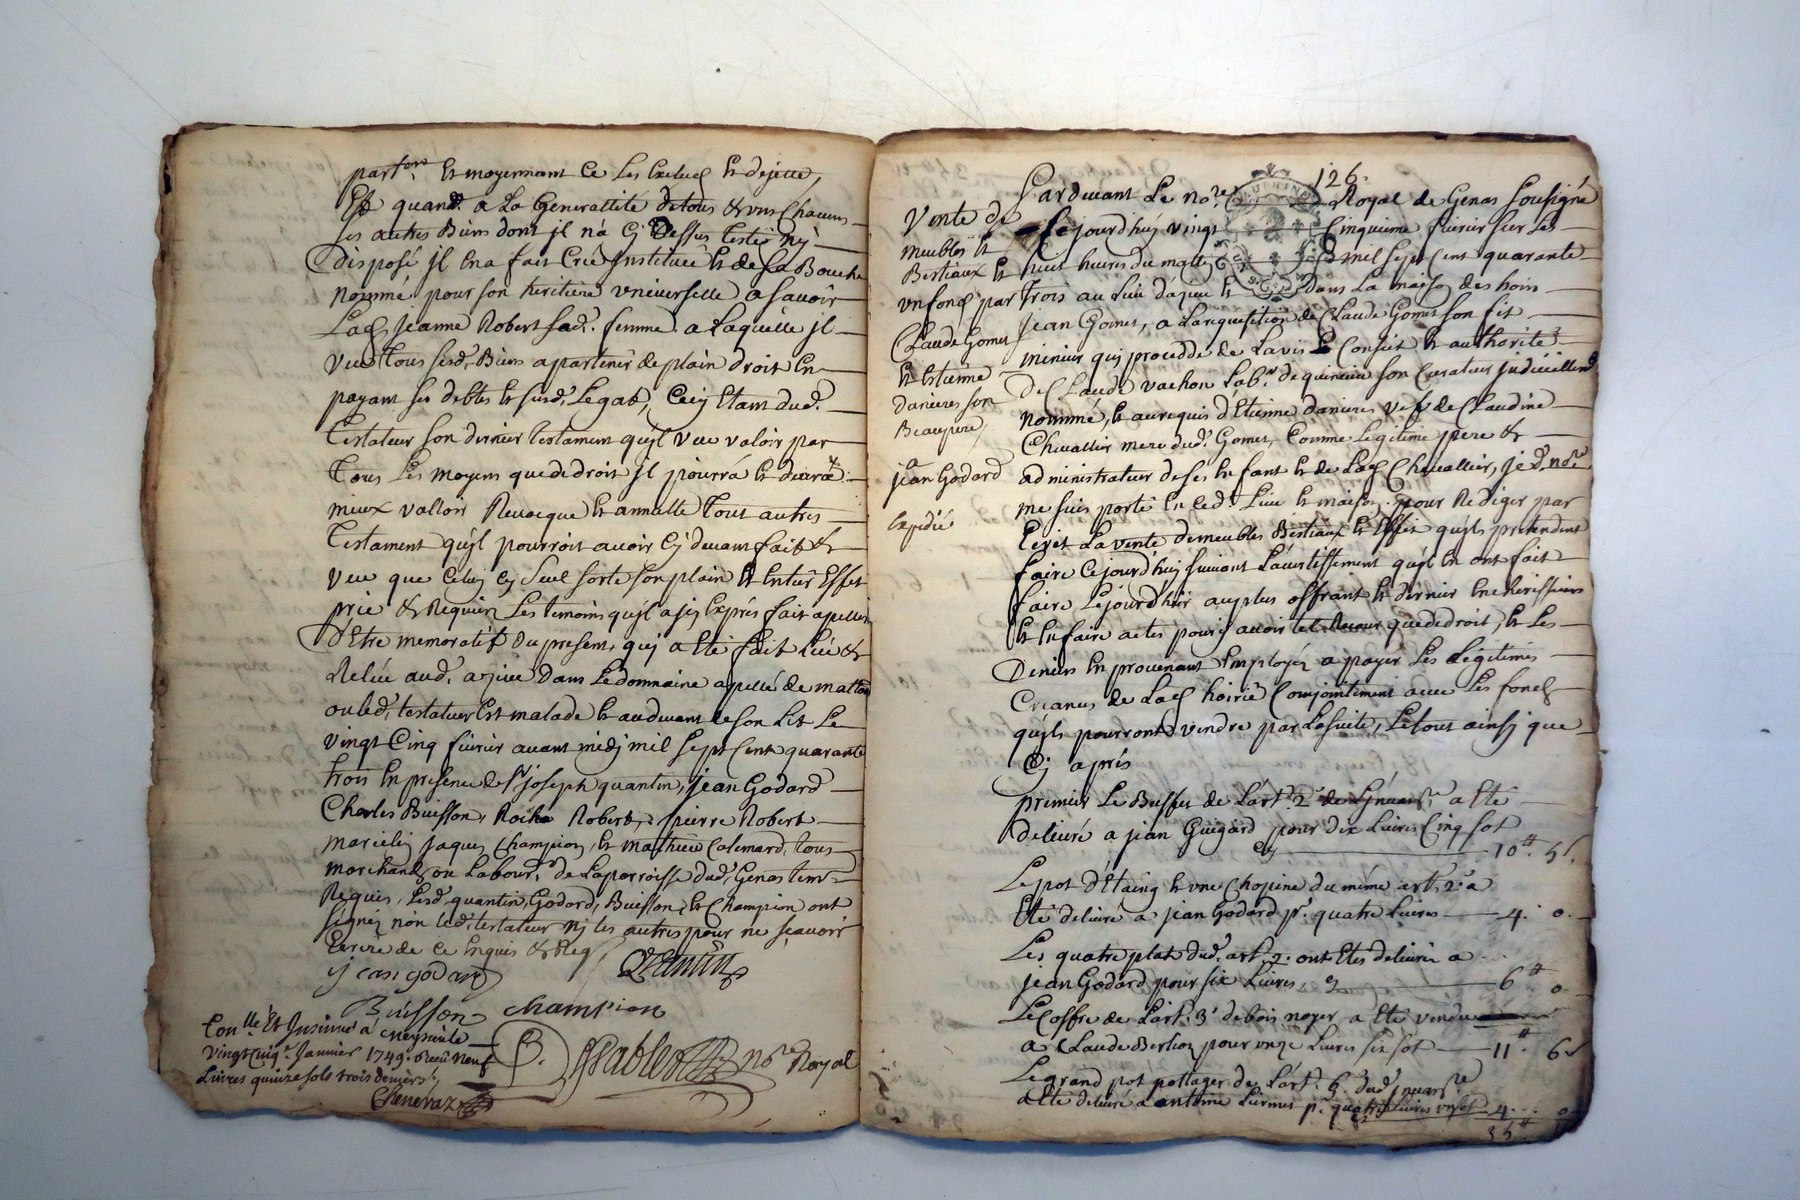 part.on Et moyennant Ce Les Exclus Et dejette,
Et quand a La Generallité de tous & uns Chacuns
ses autres Biens dont jl na Cy Dessus testé ny
Disposé jl En a fait Crée Instituée Et de Sa Bouche
Nommé pour son heritiere universelle a Scavoir
Lad. Jeanne Robert sad.e femme a Laquelle jl
Veut tous sesd. Biens apartenir de plain droit En
payant ses debtes Et susd. Legats, Cecy Etant dud.
Testateur son dernier testament qu'jl veut valoir par
Tous Les moyens que de droit jl pourra Et devra
mieux valloir Revoque Et annulle Tout autres
Testament qu'jl pourroit avoir Cy devant fait &
Veut que Celuy Cy Seul sorte son plain Et Entier Effet
prié & Requis Les temoins qu'jl a jcy Exprés fait apeller
D'Etre memoratifs Du present, quj a Eté fait Leü &
Reléu aud. azieu Dans Le Domaine apellé de matton
ou led. testateur Est malade Et audevant de son Lit Le
vingt Cinq fevrier avant midj mil sept Cent quarante
trois En presence de Sr joseph quantin, jean Godard
Charles Buisson, Roche Robert, pierre Robert
marcelin jaques Champion, Et mathieu Calemard, tous
marchands ou Labour.rs de La parroisse dud. Genas tem.
Requis, Lesd. quantin, Godard, Buisson, Et Champion ont
signés non led. testateur nj les autres pour ne sçavoir
Ecrire de ce Enquis & Req.
jean godard quantin
Buisson champion
Pable no.re Royal
Con.lle Et Insinué a meyzieu Le
vingt cinq.e Janvier 1749. Receu neuf
Livres quinze sols trois deniers
Chenevaz
126.
Pardevant Le no.re Royal de Genas Sousigné
Vente de
meubles Et
Bestiaux Et
un fond par
Claude Gomet
Et Estienne
danieres son
Beaupere,
a
jean Godard
Expedié
Cejourd'huy vingt Cinquieme fevrier sur Les
huit heures du matin mil sept Cent quarante
Trois au Lieu d'azieu Et Dans La maison des hoirs
jean Gomet, a La requisition de Claude Gomet son fils
mineur quj procedde de L'avis Et Conseil Et authorité
De Claude vachon Lab.r de quincieu son Curateur judiciellem.t
Nommé, Et au requis d'Etienne danieres vef de Claudine
Chevallier mere dud. Gomet, Comme Legitime pere &
administrateur de ses Enfant Et de Lad. Chevallier, je d. no.re
me suis porté En led. Lieu Et maison, pour Rediger par
Ecrit La vente de meubles Bestiaux Et Effet qu'jls pretendent
faire Cejourd'huy suivant L'avertissement qu'jl En ont fait
faire Cejourd'huy au plus offrant Et dernier Encherisseurs
Et En faire actes pour y avoir tel Recour que de droit, Et Les
Deniers En provenant Employér a payer Les Légitimes
Creanciers de Lad. hoirie Conjointement avec Les fond
qu'jls pourront vendre par La suite, Le tout ainsj que
Cj aprés
premier Le Buffet de L'art. 2.e a Eté
delivré a jean Guigard pour dix Livres Cinq sol
Cy 10# 5s.
Le pot d'Etaing Et une Chopine du méme art. 2.e a
Eté delivré a jean Godard p.r quatre Livres 4. 0.
Les quatre plat dud. art. 2. ont Etés delivré a
jean Godard pour six Livres 6# 0
Le Coffre de L'art. 3.e de bois noyer a Eté vendu
a Claude Berlioz pour unze Livres six sol 11# 6s
Le grand pot pottager de L'art. 6.e
a Eté delivré a antoine p.r quatre Livres 4. 0